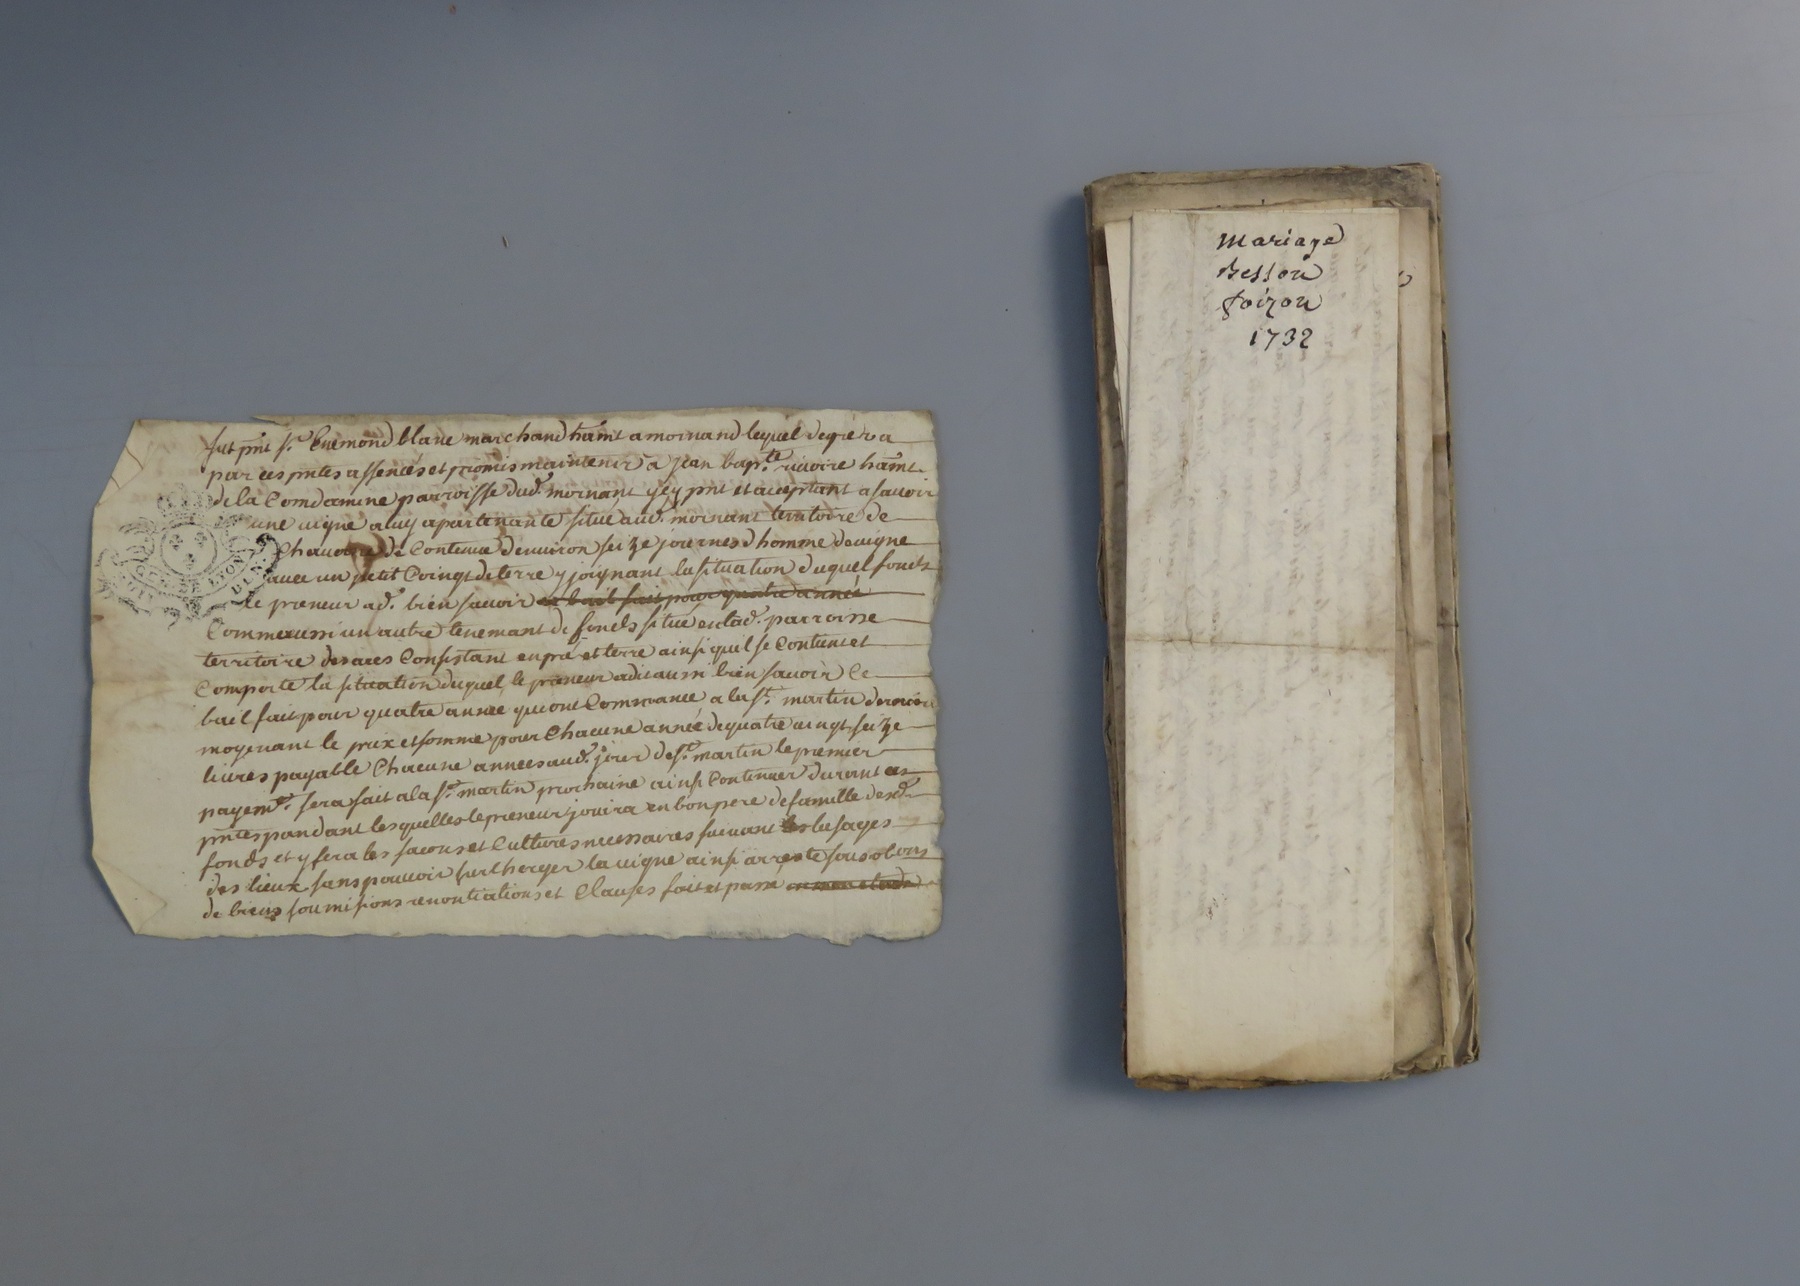 fut pnt sr. Enemond blanc marchand hant a mornand lequel de gré va
par ces pntes assencés et promis maintenir a jean bap.te rivoire hant.
de la Comdamine parroisse dud. mornant y cy pnt et aceptant a savoir
une vigne a luy apartenante situé aud. mornant territoire de
de Contenue denviron seize journes dhomme de vigne
avec un petit Coingt de terre y joignant la situation duquel fonds
le preneur a d. bien savoir le bail fait pour quatre année
Comme aussi un autre tenemant de fonds situé en lad. parroisse
territoire des aces Consistant en pré et terre ainsi quil se Contient et
Comporte la situation duquel le preneur a dit aussi bien savoir Ce
bail fait pour quatre année qui ont Commancé a la st. martin derniere
moyenant le prix et somme pour Chacune année de quatre vingt seize
livres payable Chacune annees aud. jour de st. martin le premier
payemt. sera fait a la st. martin prochaine ainsi Continuer durant ces
pntes pandant lesquelles le preneur jouira en bon pere de famille desd.
fonds et y fera les facons et Cultures necessaires suivant les usages
des lieux sans pouvoir surcherger la vigne ainsi arresté sous obons
de biens soumisions renontiations et Clauses fait et passé
Mariage
Besson
foizon
1732